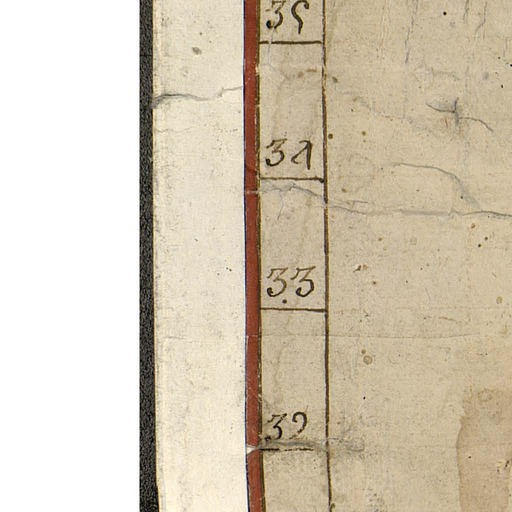 35
34
33
32